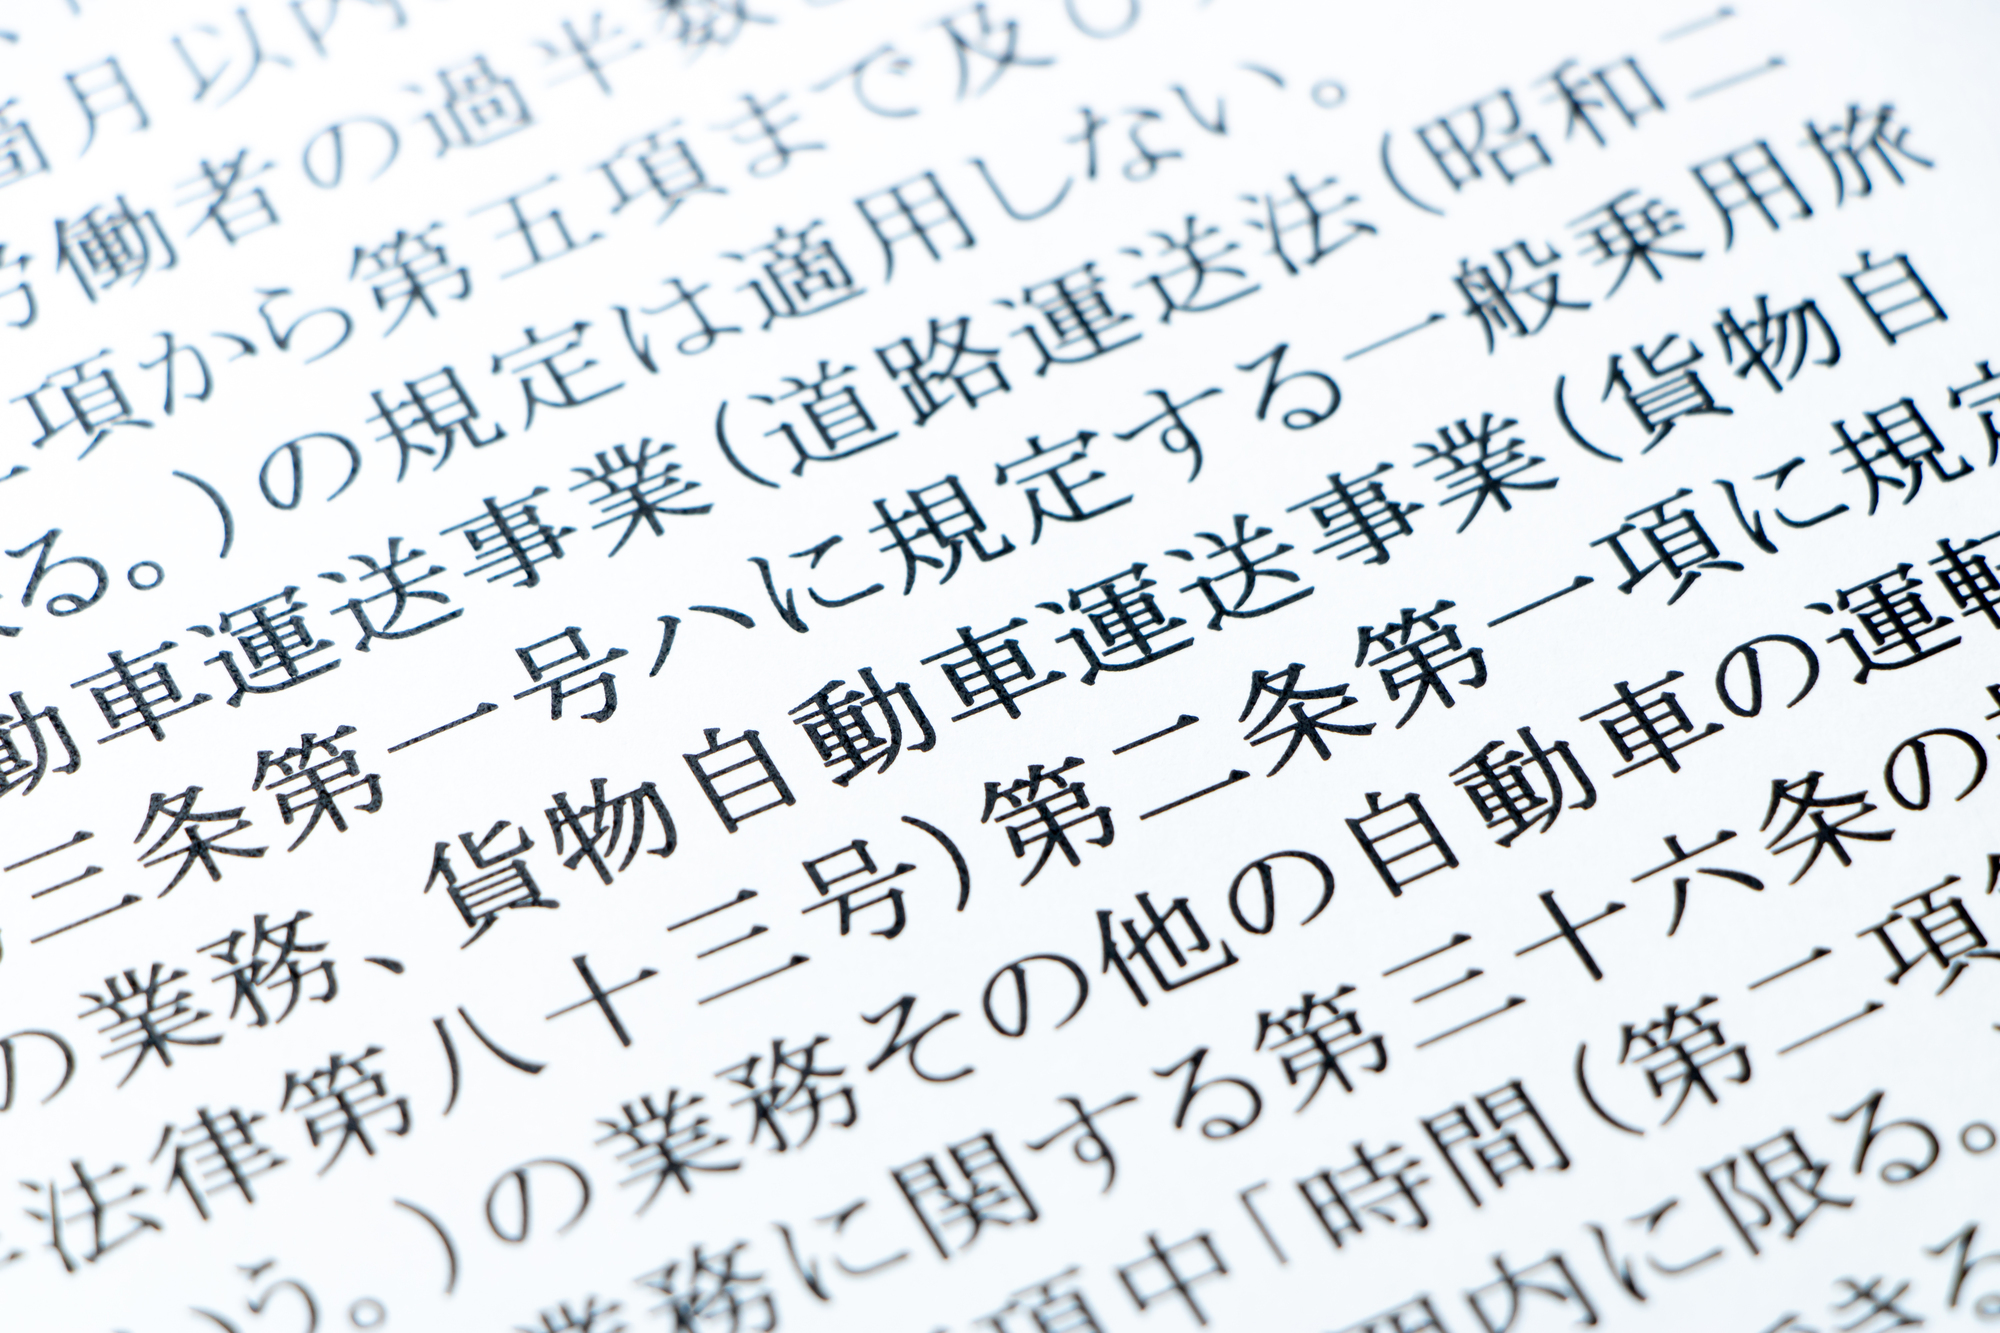 箇月以内
労働者の過半数
項から第五項まで及び
る。)の規定は適用しない。
動車運送事業(道路運送法(昭和二
三条第一号ハに規定する一般乗用旅
の業務、貨物自動車運送事業(貨物自
法律第八十三号)第二条第一項に規定
う。)の業務その他の自動車の運転
業務に関する第三十六条の
項中「時間(第二項
内に限る。
きる